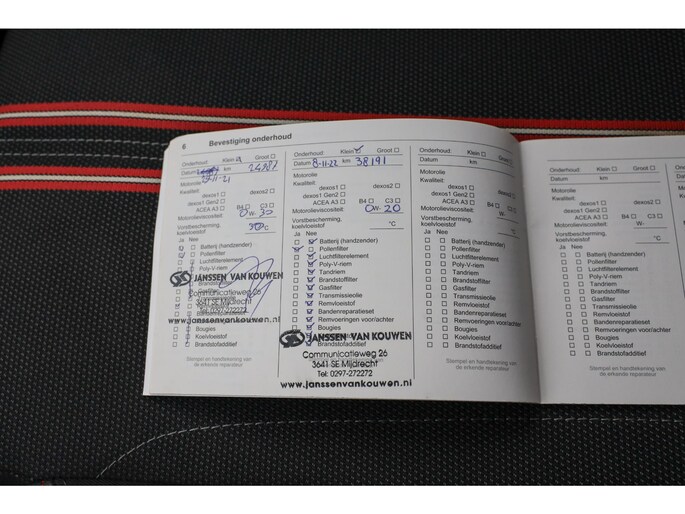 6 Bevestiging onderhoud
Onderhoud: Klein Groot
Datum km 24787
11-21
Motorolie
Kwaliteit:
dexos1 dexos2
dexos1 Gen2
ACEA A3 B4 C3
Motorolieviscositeit: 0 W- 30
Vorstbescherming,
koelvloeistof °C
Ja Nee
Batterij (handzender)
Pollenfilter
Luchtfilterelement
Poly-V-riem
JANSSEN VAN KOUWEN
Communicatieweg 26
3641 SE Mijdrecht
Tel: 0297-272272
www.janssenvankouwen.nl
Bougies
Koelvloeistof
Brandstofadditief
Stempel en handtekening van
de erkende reparateur
Onderhoud: Klein Groot
Datum 8-11-22 km 38191
Motorolie
Kwaliteit:
dexos1 dexos2
dexos1 Gen2
ACEA A3 B4 C3
Motorolieviscositeit: 0 W- 20
Vorstbescherming,
koelvloeistof °C
Ja Nee
Batterij (handzender)
Pollenfilter
Luchtfilterelement
Poly-V-riem
Tandriem
Brandstoffilter
Gasfilter
Transmissieolie
Remvloeistof
Bandenreparatieset
Remvoeringen voor/achter
Bougies
JANSSEN VAN KOUWEN
Communicatieweg 26
3641 SE Mijdrecht
Tel: 0297-272272
www.janssenvankouwen.nl
Onderhoud: Klein Groot
Datum km
Motorolie
Kwaliteit:
dexos1 dexos2
dexos1 Gen2
ACEA A3 B4 C3
Motorolieviscositeit: W-
Vorstbescherming,
koelvloeistof °C
Ja Nee
Batterij (handzender)
Pollenfilter
Luchtfilterelement
Poly-V-riem
Tandriem
Brandstoffilter
Gasfilter
Transmissieolie
Remvloeistof
Bandenreparatieset
Remvoeringen voor/achter
Bougies
Koelvloeistof
Brandstofadditief
Stempel en handtekening van
de erkende reparateur
Onderhoud: Klein Groot
Datum km
Motorolie
Kwaliteit:
dexos1
dexos1 Gen2
ACEA A3 B4
Motorolieviscositeit:
Vorstbescherming,
koelvloeistof
Ja Nee
Batterij (handzender)
Pollenfilter
Luchtfilterelement
Poly-V-riem
Tandriem
Brandstoffilter
Gasfilter
Transmissieolie
Remvloeistof
Bandenreparatieset
Remvoeringen voor/achter
Bougies
Koelvloeistof
Brandstofadditief
Stempel en handtekening van
de erkende reparateur